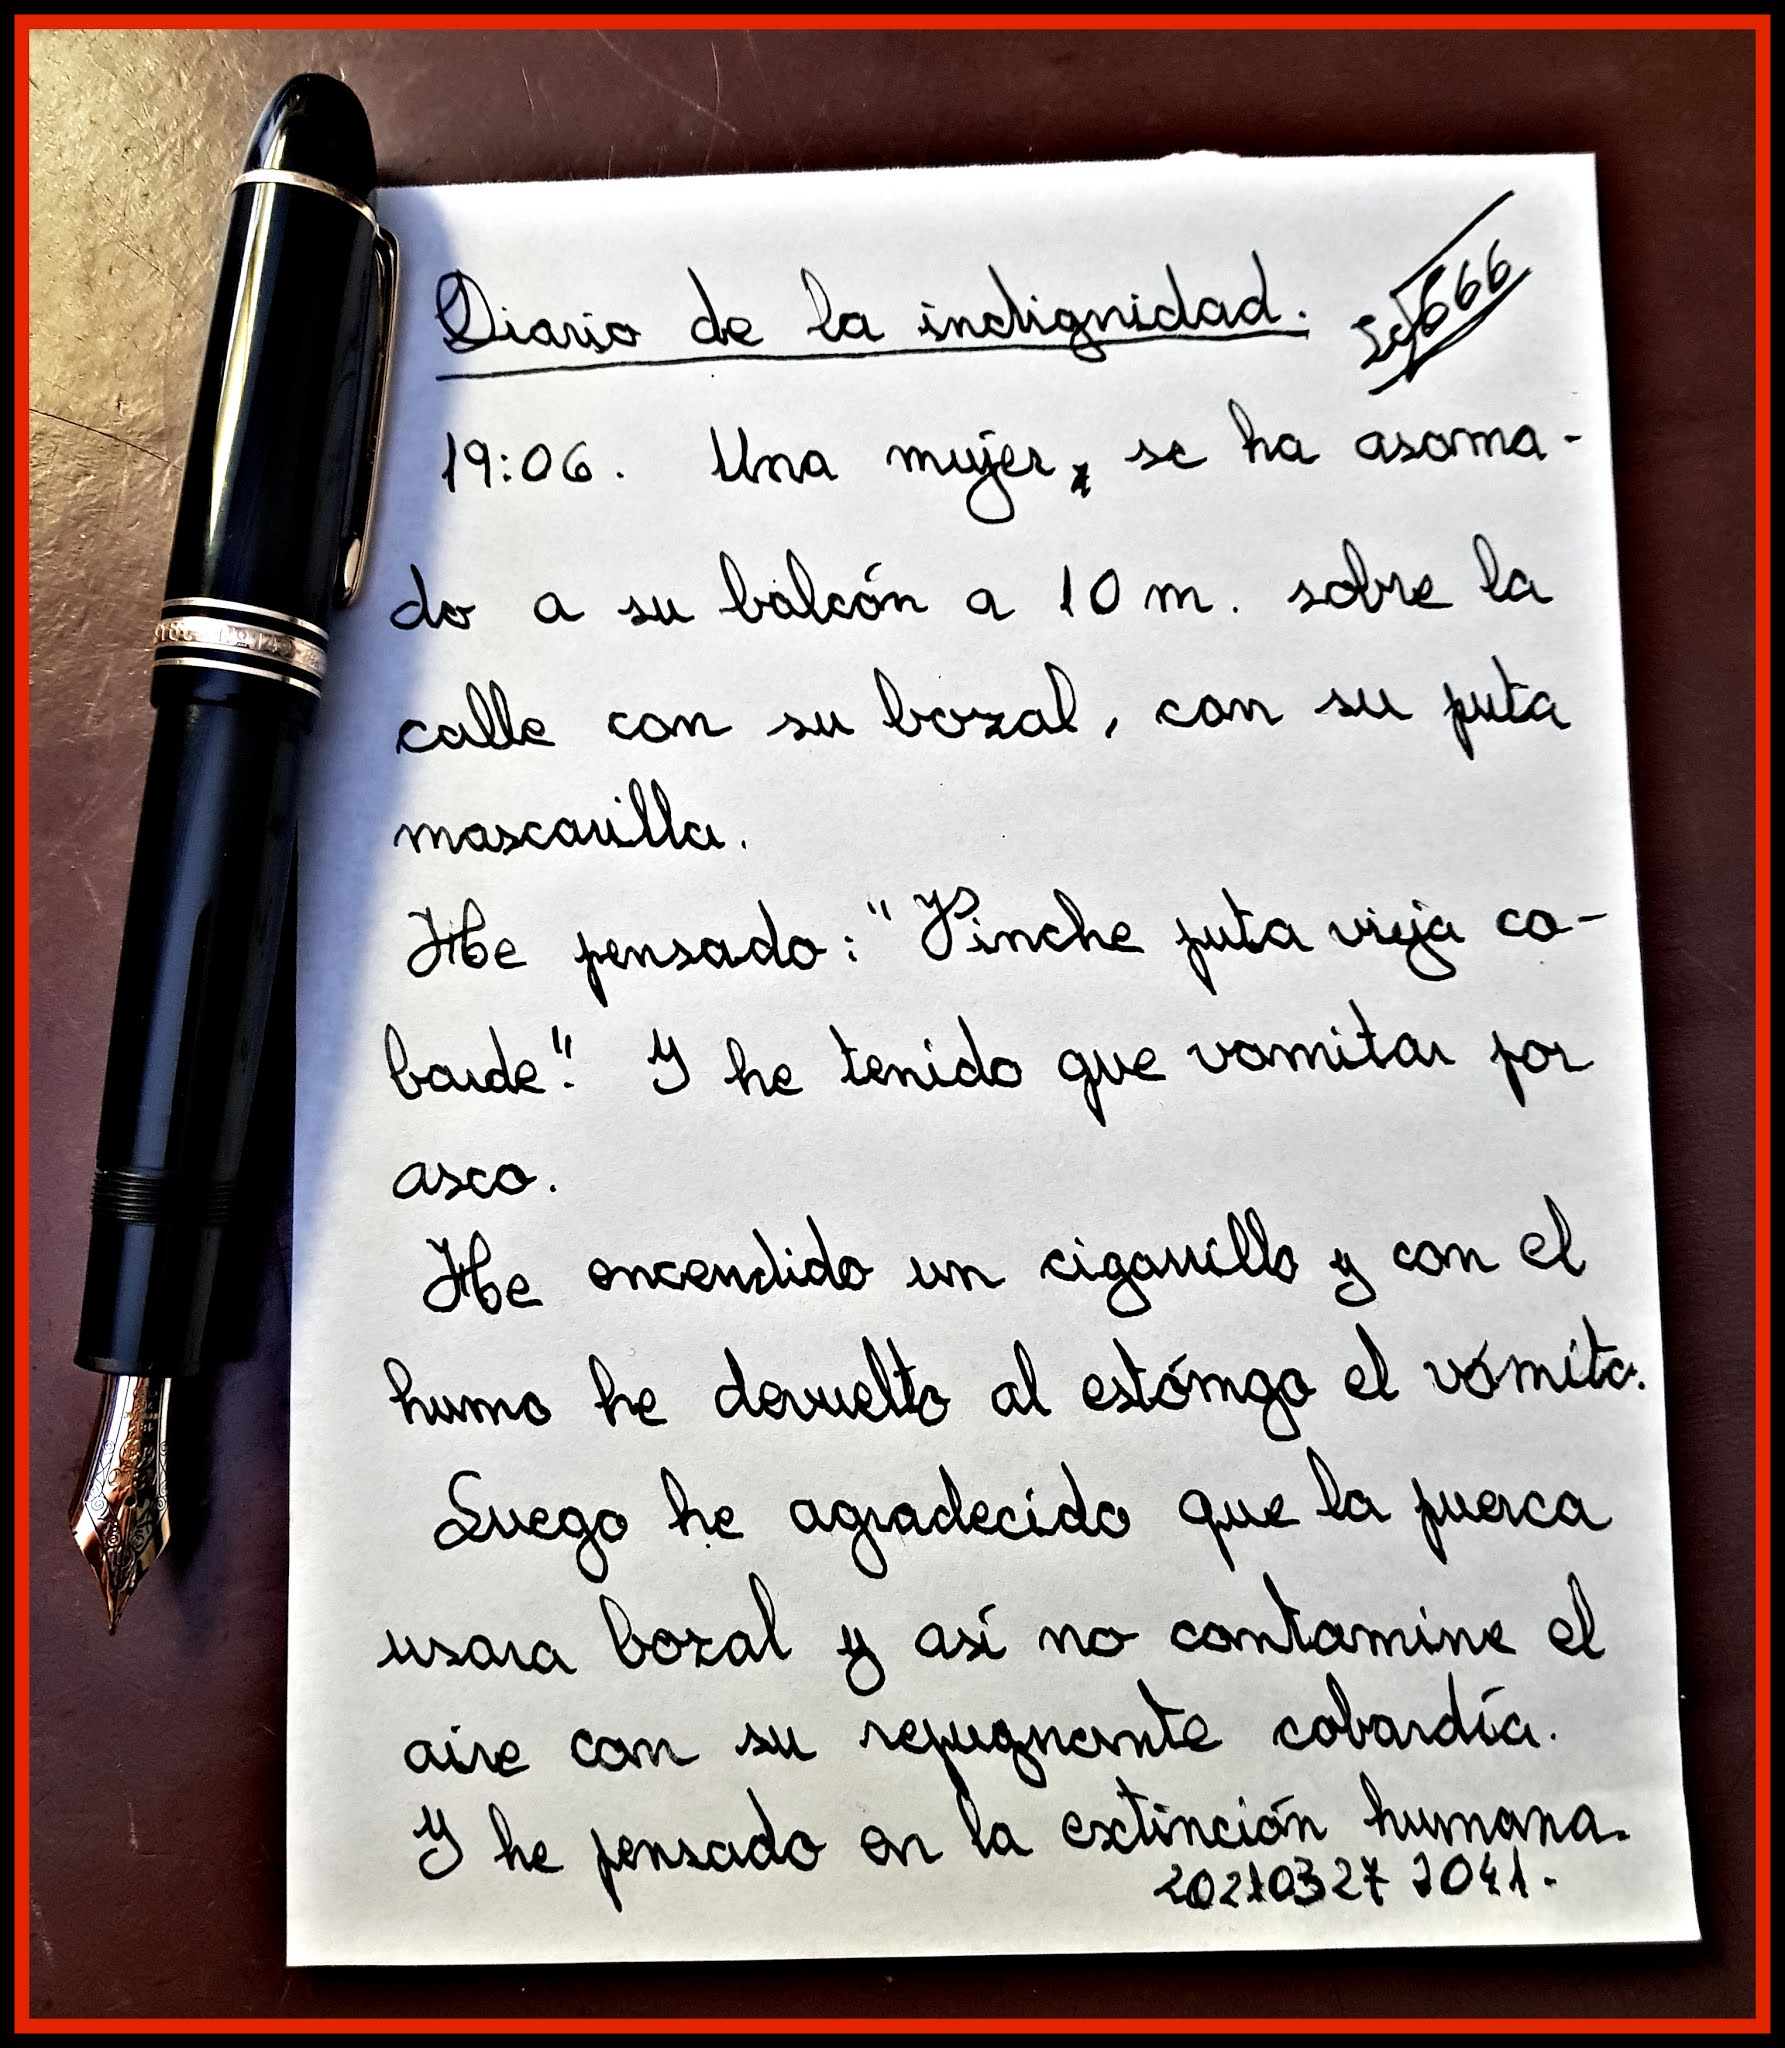 Diario de la indignidad.
666
19:06. Una mujer, se ha asoma-
do a su balcón a 10 m. sobre la
calle con su bozal, con su puta
mascarilla.
He pensado: "Pinche puta vieja co-
barde". Y he tenido que vomitar por
asco.
He encendido un cigarrillo y con el
humo he devuelto al estómgo el vómito.
Luego he agradecido que la puerca
usara bozal y así no contamine el
aire con su repugnante cobardía.
Y he pensado en la extinción humana.
20210327 2041.